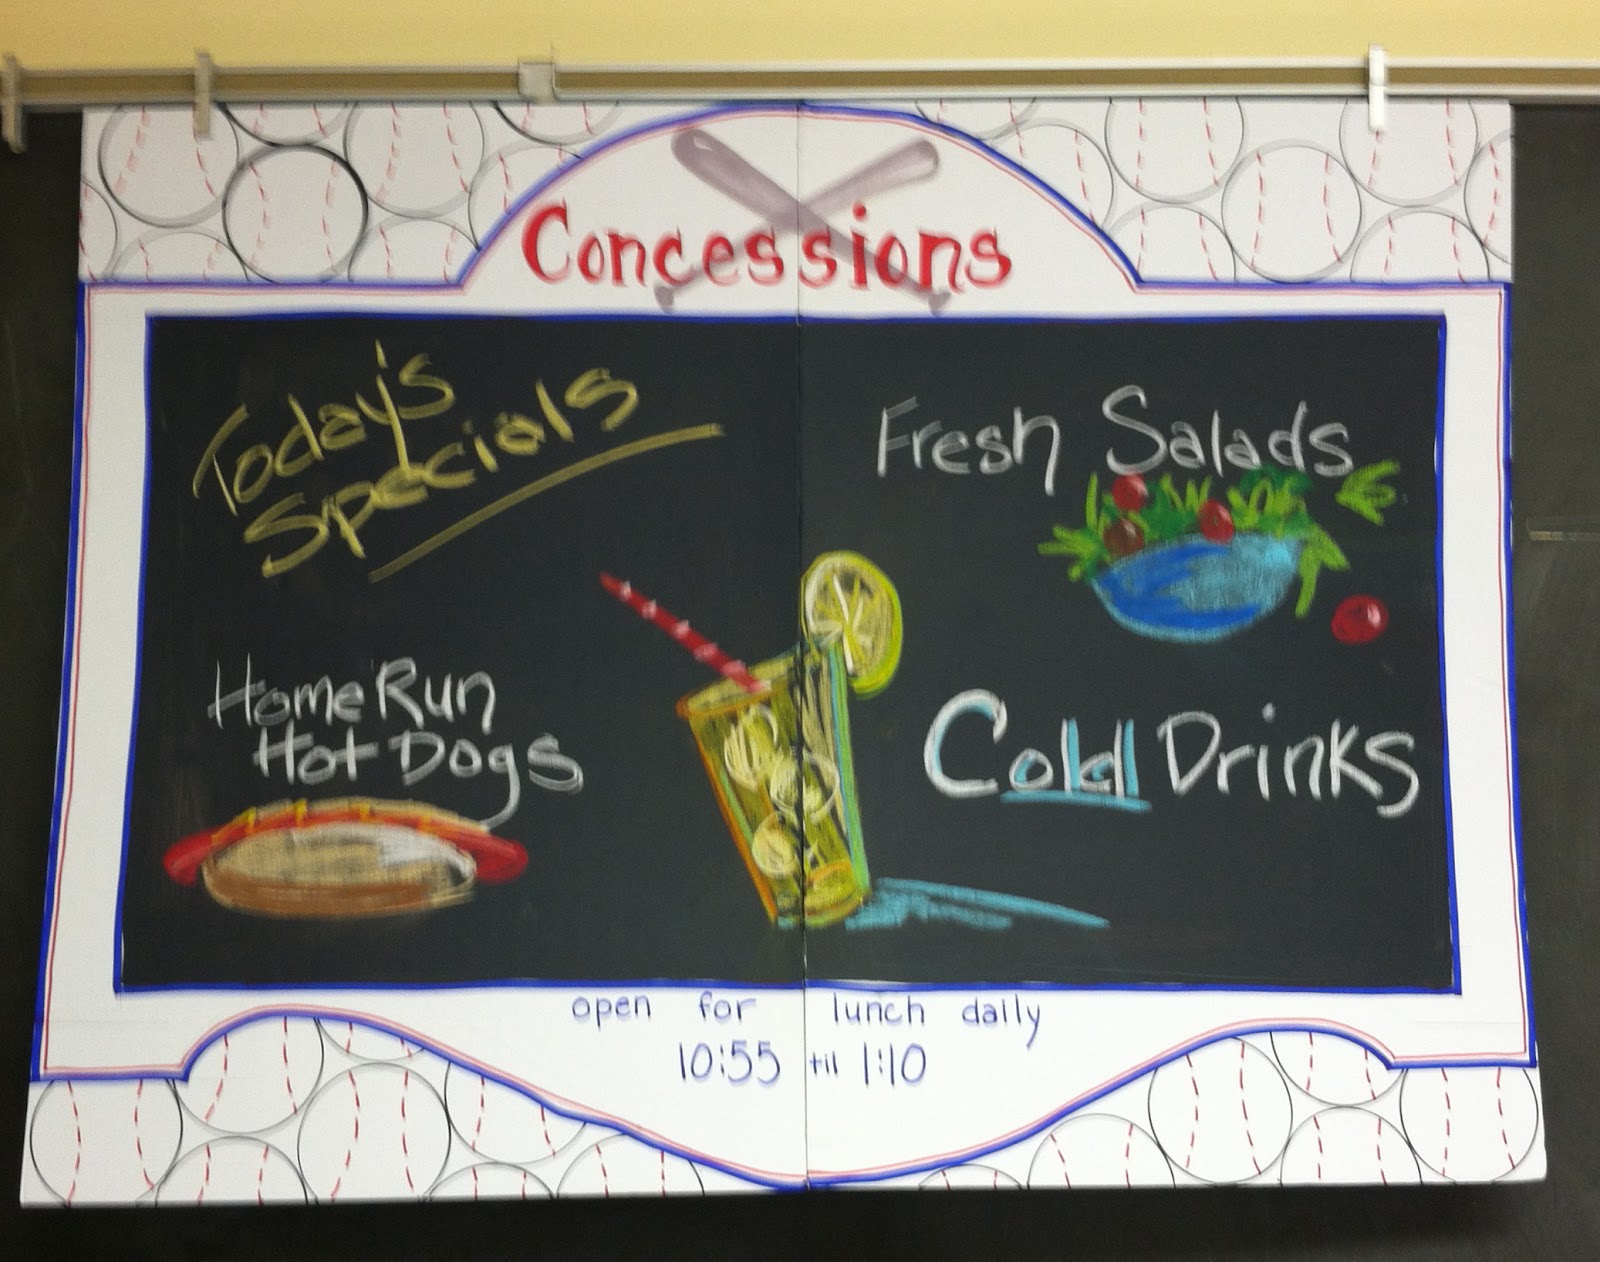 Concessions
Today's
Specials
Home Run
Hot Dogs
Fresh Salads
Cold Drinks
open for lunch daily
10:55 til 1:10